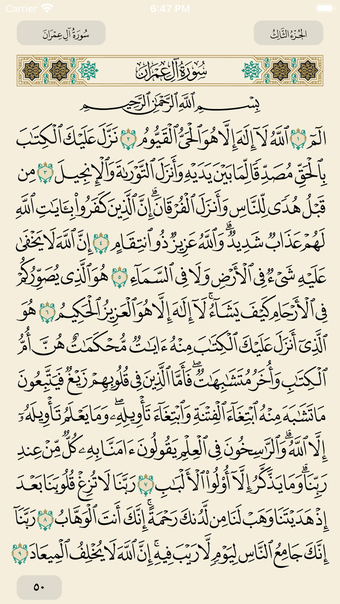 Carrier 6:47 PM
سُورَةُ آلِ عِمْرَانَ الجُزْءُ الثَّالِثُ
سُورَةُ آلِ عِمْرَانَ
بِسْمِ ٱللَّهِ ٱلرَّحْمَٰنِ ٱلرَّحِيمِ
الٓمٓ ١ ٱللَّهُ لَآ إِلَٰهَ إِلَّا هُوَ ٱلْحَىُّ ٱلْقَيُّومُ ٢ نَزَّلَ عَلَيْكَ ٱلْكِتَٰبَ
بِٱلْحَقِّ مُصَدِّقًا لِّمَا بَيْنَ يَدَيْهِ وَأَنزَلَ ٱلتَّوْرَىٰةَ وَٱلْإِنجِيلَ ٣ مِن
قَبْلُ هُدًى لِّلنَّاسِ وَأَنزَلَ ٱلْفُرْقَانَ ۗ إِنَّ ٱلَّذِينَ كَفَرُوا۟ بِـَٔايَٰتِ ٱللَّهِ
لَهُمْ عَذَابٌ شَدِيدٌ ۗ وَٱللَّهُ عَزِيزٌ ذُو ٱنتِقَامٍ ٤ إِنَّ ٱللَّهَ لَا يَخْفَىٰ
عَلَيْهِ شَىْءٌ فِى ٱلْأَرْضِ وَلَا فِى ٱلسَّمَآءِ ٥ هُوَ ٱلَّذِى يُصَوِّرُكُمْ
فِى ٱلْأَرْحَامِ كَيْفَ يَشَآءُ ۚ لَآ إِلَٰهَ إِلَّا هُوَ ٱلْعَزِيزُ ٱلْحَكِيمُ ٦ هُوَ
ٱلَّذِىٓ أَنزَلَ عَلَيْكَ ٱلْكِتَٰبَ مِنْهُ ءَايَٰتٌ مُّحْكَمَٰتٌ هُنَّ أُمُّ
ٱلْكِتَٰبِ وَأُخَرُ مُتَشَٰبِهَٰتٌ ۖ فَأَمَّا ٱلَّذِينَ فِى قُلُوبِهِمْ زَيْغٌ فَيَتَّبِعُونَ
مَا تَشَٰبَهَ مِنْهُ ٱبْتِغَآءَ ٱلْفِتْنَةِ وَٱبْتِغَآءَ تَأْوِيلِهِۦ ۗ وَمَا يَعْلَمُ تَأْوِيلَهُۥٓ
إِلَّا ٱللَّهُ ۗ وَٱلرَّٰسِخُونَ فِى ٱلْعِلْمِ يَقُولُونَ ءَامَنَّا بِهِۦ كُلٌّ مِّنْ عِندِ
رَبِّنَا ۗ وَمَا يَذَّكَّرُ إِلَّآ أُو۟لُوا۟ ٱلْأَلْبَٰبِ ٧ رَبَّنَا لَا تُزِغْ قُلُوبَنَا بَعْدَ
إِذْ هَدَيْتَنَا وَهَبْ لَنَا مِن لَّدُنكَ رَحْمَةً ۚ إِنَّكَ أَنتَ ٱلْوَهَّابُ ٨ رَبَّنَآ
إِنَّكَ جَامِعُ ٱلنَّاسِ لِيَوْمٍ لَّا رَيْبَ فِيهِ ۚ إِنَّ ٱللَّهَ لَا يُخْلِفُ ٱلْمِيعَادَ ٩
٥٠